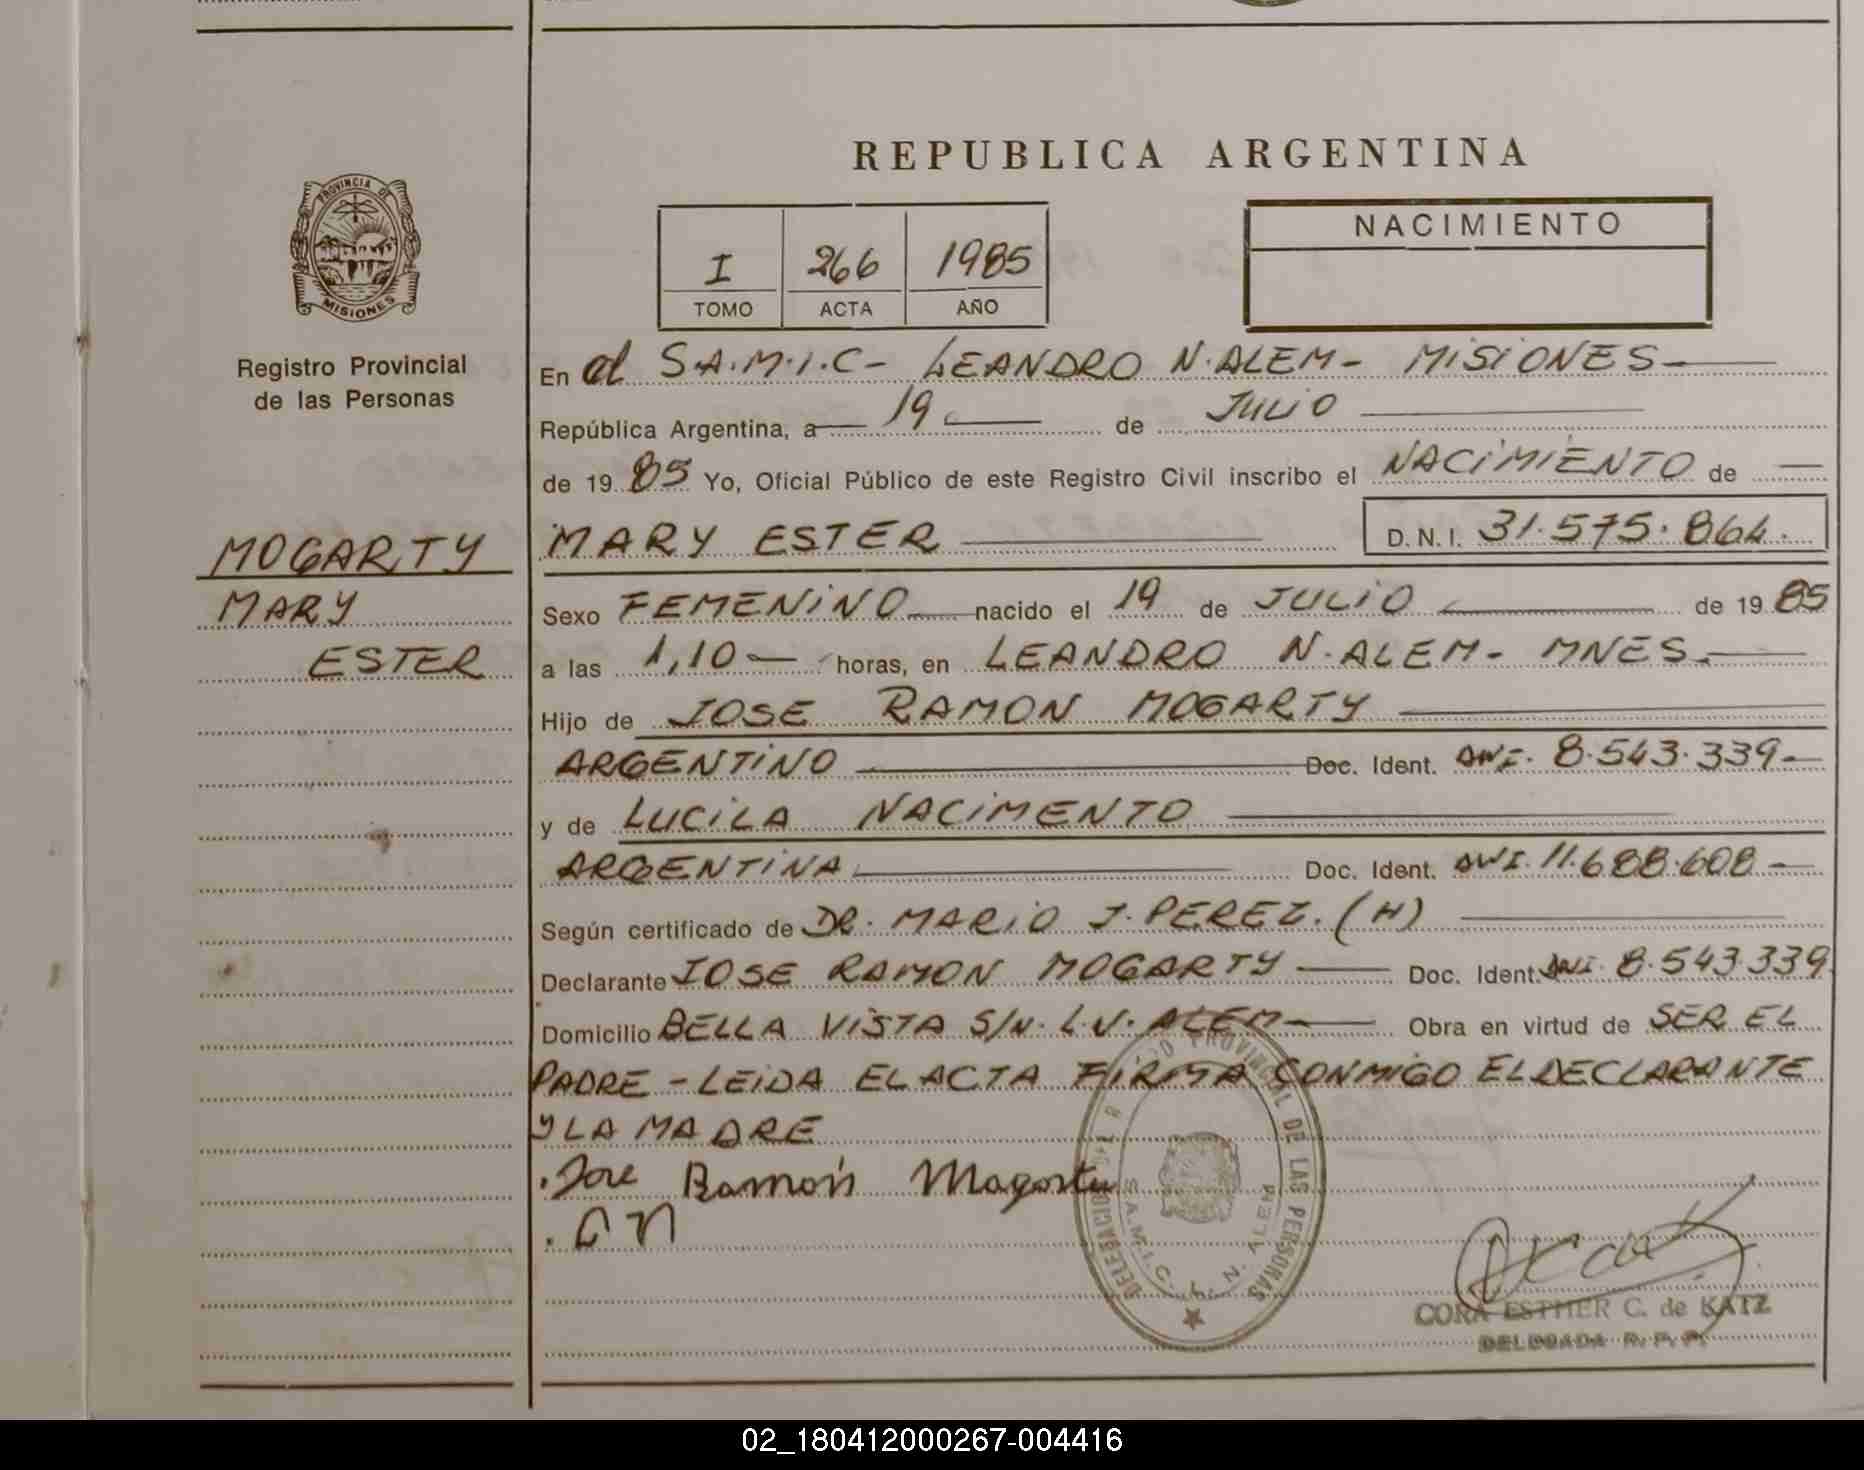 REPUBLICA ARGENTINA
PROVINCIA DE
MISIONES
Registro Provincial
de las Personas
I 266 1985
TOMO ACTA AÑO
NACIMIENTO
En el S.A.M.I.C- LEANDRO N. ALEM- MISIONES
República Argentina, a 19 de JULIO
de 19 85 Yo, Oficial Público de este Registro Civil inscribo el NACIMIENTO de
MOGARTY
MARY
ESTER
MARY ESTER D.N.I. 31.575.864.
Sexo FEMENINO nacido el 19 de JULIO de 19 85
a las 1,10 horas, en LEANDRO N. ALEM- MNES.
Hijo de JOSE RAMON MOGARTY
ARGENTINO Doc. Ident. DNI. 8.543.339-
y de LUCILA NACIMENTO
ARGENTINA Doc. Ident. DNI. 11.688.608-
Según certificado de DR. MARIO J. PEREZ. (H)
Declarante JOSE RAMON MOGARTY Doc. Ident. DNI. 8.543.339
Domicilio BELLA VISTA S/N. L.N. ALEM Obra en virtud de SER EL
PADRE - LEIDA EL ACTA FIRMA CONMIGO EL DECLARANTE
Y LA MADRE
Jose Ramón Magarty
L N
PROVINCIAL DE LAS PERSONAS
DELEGACION
S.A.M.I.C. L. N. ALEM
CORA ESTHER C. de KATZ
DELEGADA R. P. P.
02_180412000267-004416